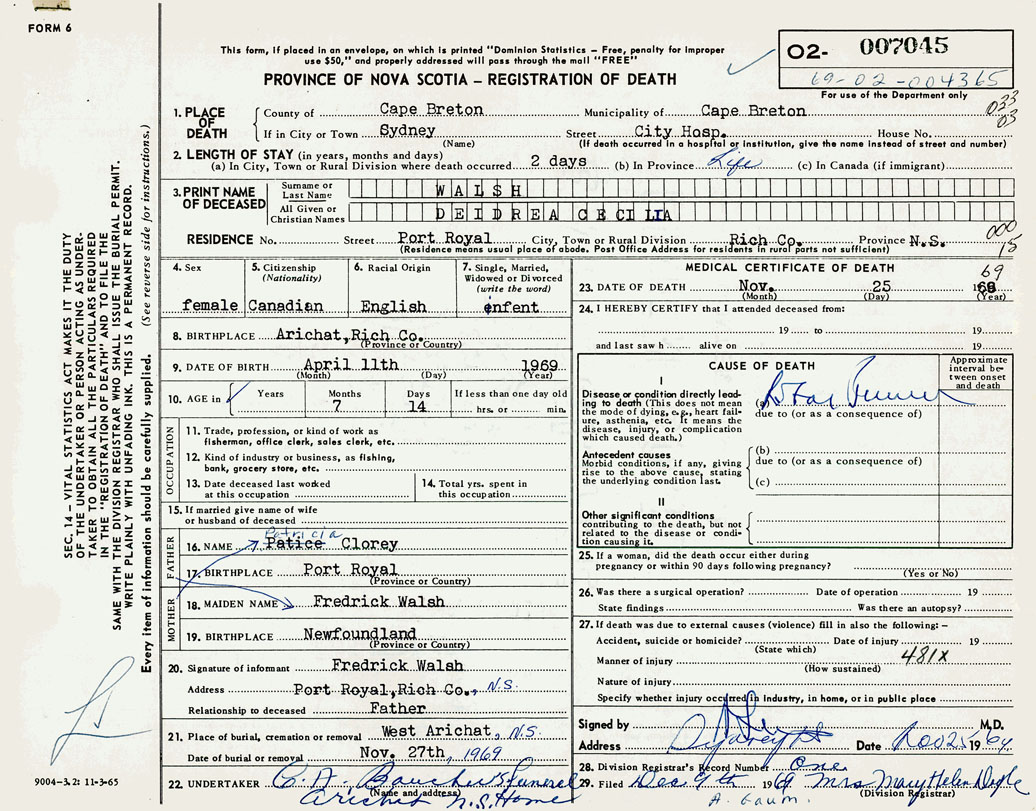 FORM 6
This form, if placed in an envelope, on which is printed "Dominion Statistics – Free, penalty for improper
use $50," and properly addressed will pass through the mail "FREE"
PROVINCE OF NOVA SCOTIA – REGISTRATION OF DEATH
02- 007045
69-02-004365
For use of the Department only
023
03
1. PLACE OF DEATH
County of Cape Breton Municipality of Cape Breton
If in City or Town Sydney Street City Hosp. House No.
(Name) (If death occurred in a hospital or institution, give the name instead of street and number)
2. LENGTH OF STAY (in years, months and days)
(a) In City, Town or Rural Division where death occurred 2 days (b) In Province Life (c) In Canada (if immigrant)
3. PRINT NAME OF DECEASED
Surname or Last Name WALSH
All Given or Christian Names DEIDREA CECILIA
000
15
RESIDENCE No. Street Port Royal City, Town or Rural Division Rich Co. Province N.S.
(Residence means usual place of abode. Post Office Address for residents in rural parts not sufficient)
4. Sex
female
5. Citizenship
(Nationality)
Canadian
6. Racial Origin
English
7. Single, Married,
Widowed or Divorced
(write the word)
infent
8. BIRTHPLACE Arichat, Rich Co.
(Province or Country)
9. DATE OF BIRTH April 11th 1969
(Month) (Day) (Year)
10. AGE in
Years Months Days If less than one day old
7 14 hrs. or min.
OCCUPATION
11. Trade, profession, or kind of work as
fisherman, office clerk, sales clerk, etc.
12. Kind of industry or business, as fishing,
bank, grocery store, etc.
13. Date deceased last worked
at this occupation
14. Total yrs. spent in
this occupation
15. If married give name of wife
or husband of deceased
FATHER
Patricia
16. NAME Patice Clorey
17. BIRTHPLACE Port Royal
(Province or Country)
MOTHER
18. MAIDEN NAME Fredrick Walsh
19. BIRTHPLACE Newfoundland
(Province or Country)
20. Signature of informant Fredrick Walsh
Address Port Royal, Rich Co., N.S.
Relationship to deceased Father
21. Place of burial, cremation or removal West Arichat, N.S.
Date of burial or removal Nov. 27th, 1969
22. UNDERTAKER C. A. Boucher's Funeral
(Name and address)
Arichat N.S. Home
MEDICAL CERTIFICATE OF DEATH
69
23. DATE OF DEATH Nov. 25 1968
(Month) (Day) (Year)
24. I HEREBY CERTIFY that I attended deceased from:
19 to 19
and last saw h alive on 19
CAUSE OF DEATH
Approximate interval between onset and death
I
Disease or condition directly leading to death (This does not
mean the mode of dying, e.g., heart failure, asthenia, etc. It means the
disease, injury, or complication
which caused death.)
(a)
due to (or as a consequence of)
Antecedent causes
Morbid conditions, if any, giving
rise to the above cause, stating
the underlying condition last.
(b)
due to (or as a consequence of)
(c)
II
Other significant conditions
contributing to the death, but not
related to the disease or condition causing it.
25. If a woman, did the death occur either during
pregnancy or within 90 days following pregnancy?
(Yes or No)
26. Was there a surgical operation? Date of operation 19
State findings Was there an autopsy?
27. If death was due to external causes (violence) fill in also the following: –
Accident, suicide or homicide? Date of injury 19
(State which)
Manner of injury 481X
(How sustained)
Nature of injury
Specify whether injury occurred in industry, in home, or in public place
Signed by M.D.
Address Date Nov 25 19 69
28. Division Registrar's Record Number One
29. Filed Dec 9th 1969 Mrs Mary Helen
(Division Registrar)
SEC. 14 – VITAL STATISTICS ACT MAKES IT THE DUTY
OF THE UNDERTAKER OR PERSON ACTING AS UNDER-
TAKER TO OBTAIN ALL THE PARTICULARS REQUIRED
IN THE "REGISTRATION OF DEATH" AND TO FILE THE
SAME WITH THE DIVISION REGISTRAR WHO SHALL ISSUE THE BURIAL PERMIT.
WRITE PLAINLY WITH UNFADING INK. THIS IS A PERMANENT RECORD.
Every item of information should be carefully supplied. (See reverse side for instructions.)
9004-3.2: 11-3-65